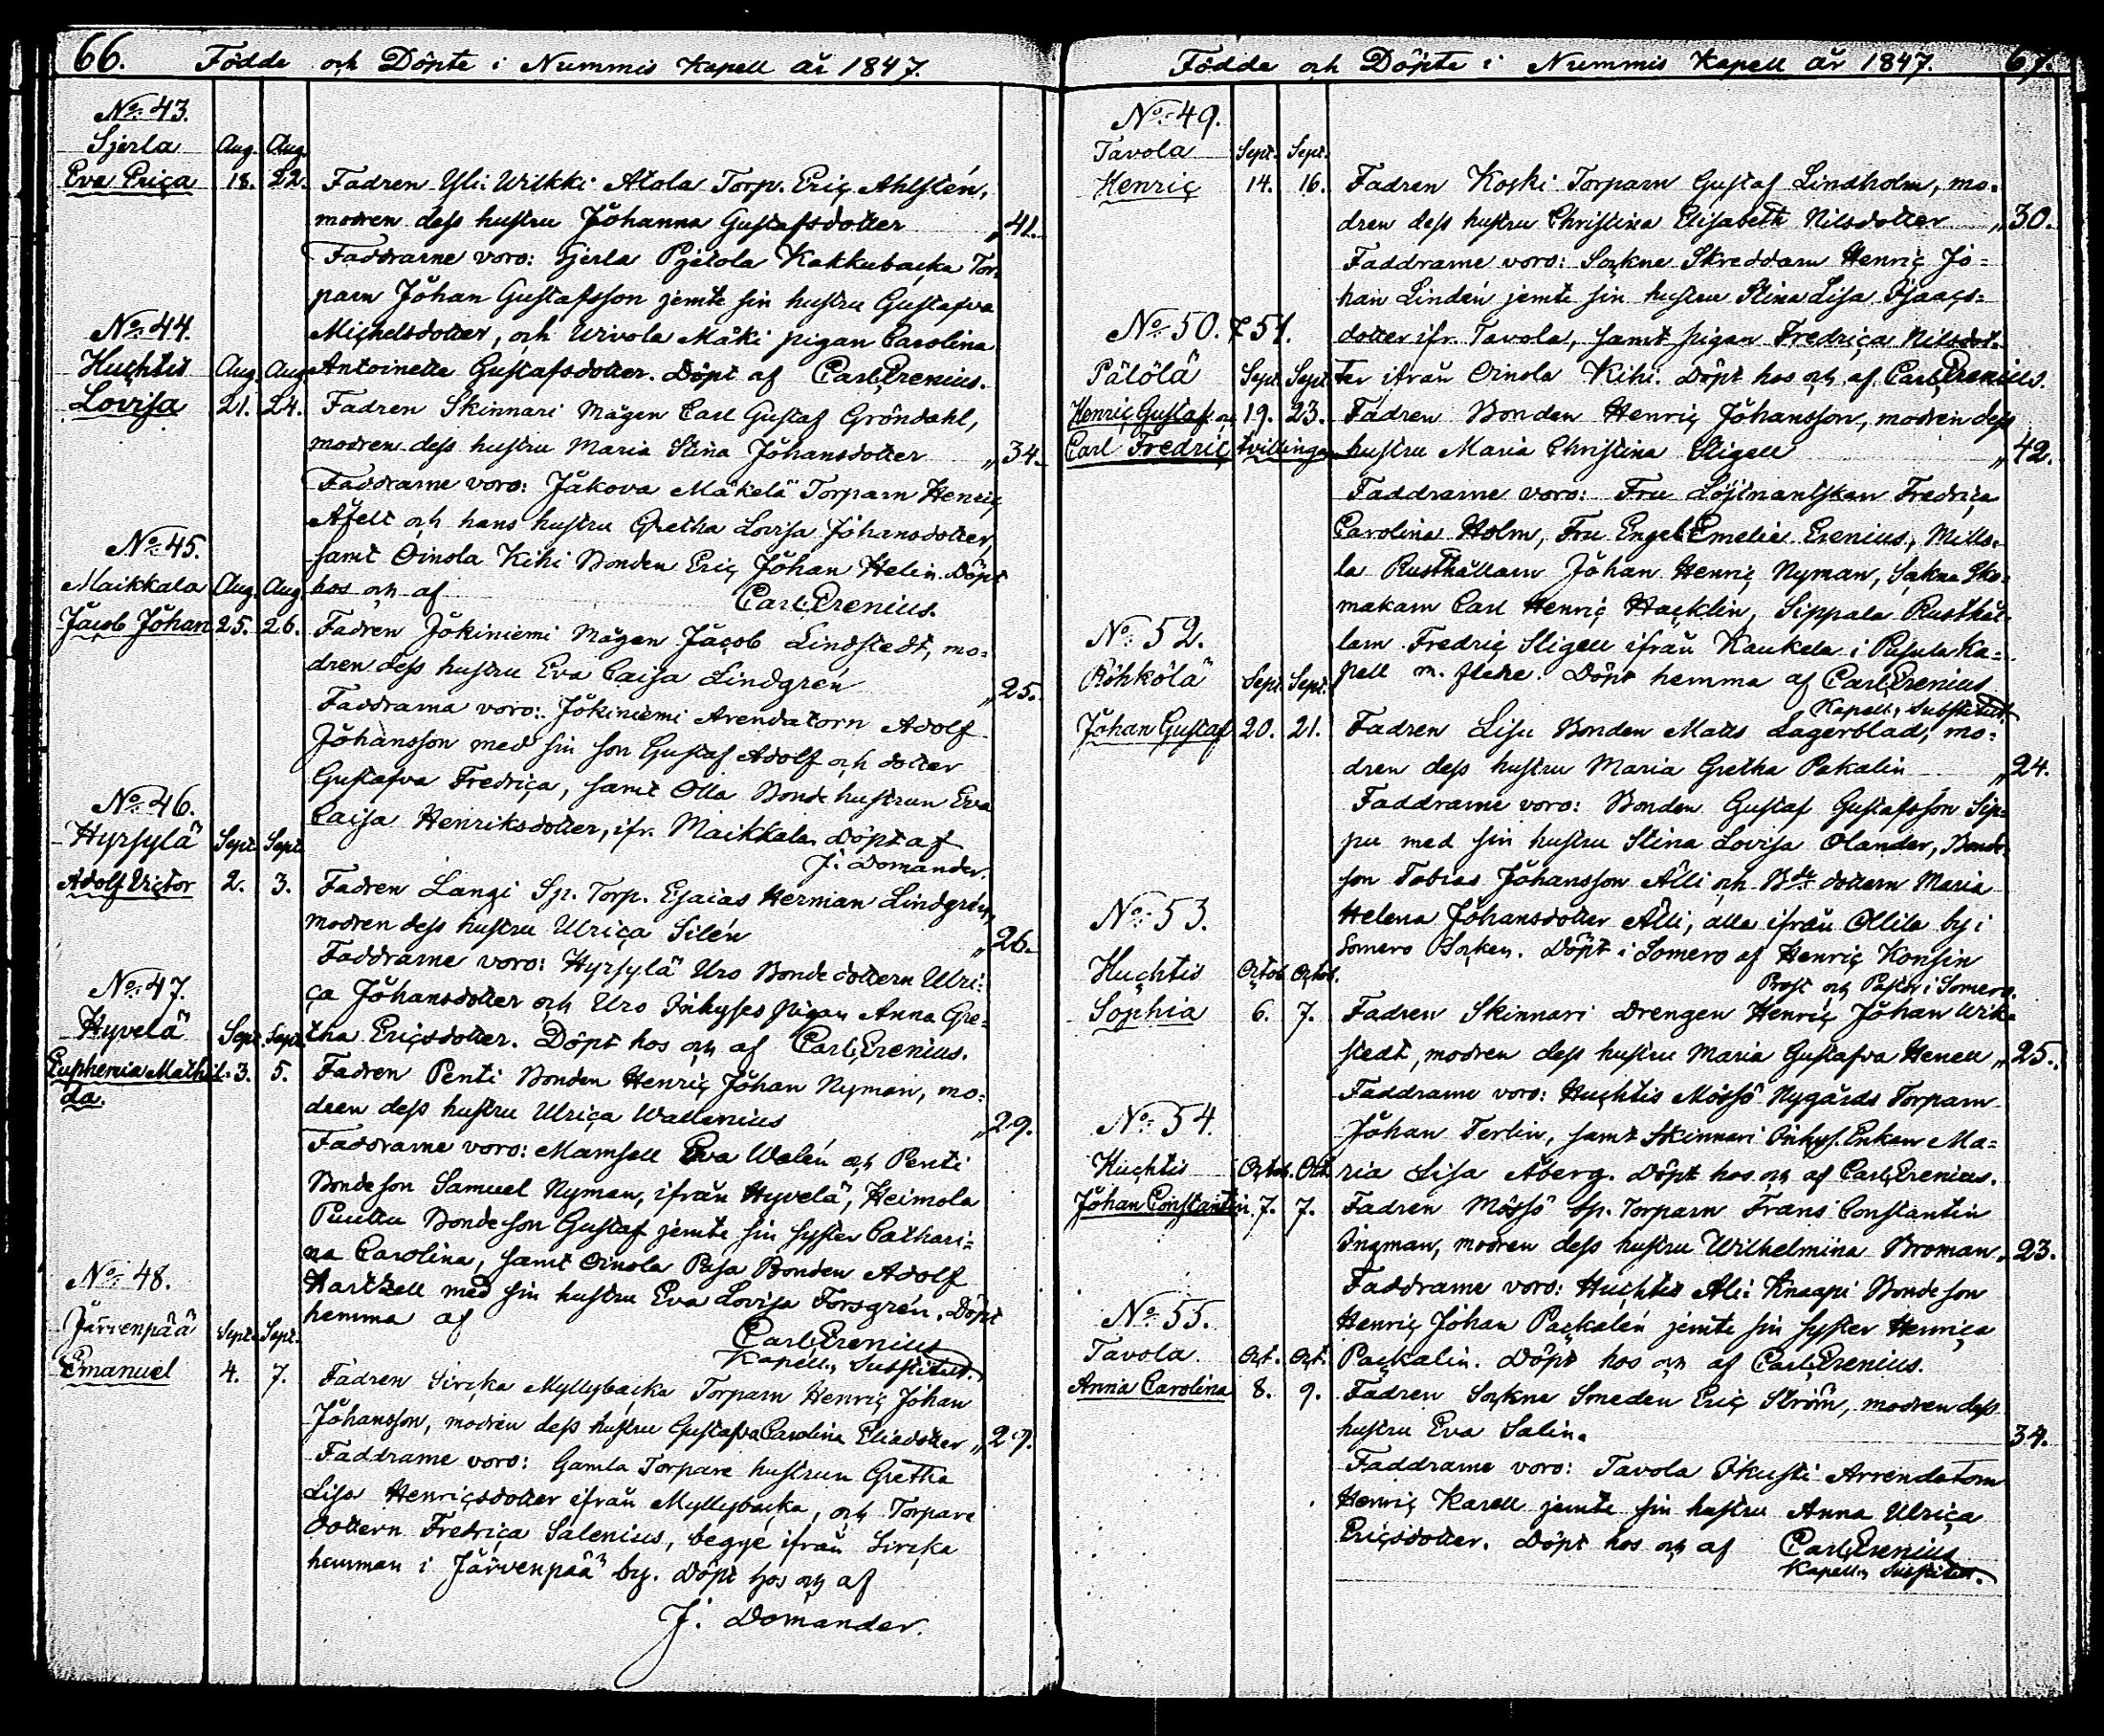 66. Födde och Döpte i Nummis Kapell år 1847.
No. 43.
Sjerla Aug. Aug.
Eva Eriça 18. 22. Fadren Yli: Wilkki Alola Torp. Eriç Ahlstén,
modren dess hustru Johanna Gustafsdotter „ 41.
Faddrarne voro: Sjerla Pjetola Kakkubacka Tor-
parn Johan Gustafsson jemte sin hustru Gustafva
No. 44.
Michelsdotter, och Urivola Mäki pigan Carolina
Huchtis Aug. Aug. Antoinetta Gustafsdotter. Döpt af Carl Erenius.
Lovisa 21. 24. Fadren Skinnari Mågen Carl Gustaf Gröndahl,
modren dess hustru Maria Stina Johansdotter „ 34.
Faddrarne voro: Jakova Mäkelä Torparn Henriç
Afelt och hans hustru Gretha Lovisa Johansdotter,
No. 45.
samt Oinola Kihi Bonden Eriç Johan Helin. Döpt
Maikkala Aug. Aug. hos och af Carl Erenius.
Jacob Johan 25. 26. Fadren Jokiniemi Mågen Jacob Lindstedt, mo=
dren dess hustru Eva Caisa Lindgrén „ 25.
Faddrarna voro: Jokiniemi Arendatorn Adolf
Johansson med sin son Gustaf Adolf och dotter
Gustafva Fredriça, samt Olla Bonde hustrun Eva
No. 46.
Caisa Henriksdotter, ifr. Maikkala. Döpt af
Hyrsylä Sept. Sept. J. Domander.
Adolf Victor 2. 3. Fadren Langi Sp. Torp. Esaias Herman Lindgrén,
modren dess hustru Ulriça Silén „ 26.
Faddrarne voro: Hyrsylä Uro Bonde dottern Ulri-
No. 47.
ça Johansdotter och Uro Inhyses Pigan Anna Gre=
Hyvelä Sept. Sept. tha Eriçsdotter. Döpt hos och af Carl Erenius.
Euphemia Mathil- 3. 5. Fadren Penti Bonden Henriç Johan Nyman, mo=
da.
dren dess hustru Ulriça Wallenius „ 29.
Faddrarne voro: Mamsell Eva Walén och Penti
Bonde son Samuel Nyman, ifrån Hyvelä, Heimola
Puuttu Bonde son Gustaf jemte sin syster Cathari=
na Carolina, samt Oinola Pasa Bonden Adolf
No. 48.
Hartzell med sin hustru Eva Lovisa Forsgrén. Döpt
hemma af Carl Erenius
Järvenpää Sept. Sept. Kapells Substitut.
Emanuel 4. 7. Fadren Sircka Myllybacka Torparn Henriç Johan
Johansson, modren dess hustru Gustafva Carolina Eliædotter „ 29.
Faddrarne voro: Gamla Torpare hustrun Gretha
Lisa Henriçsdotter ifrån Myllybacka, och Torpare
dottern Fredriça Salenius, begge ifrån Sircka
hemman i Järvenpää by. Döpt hos och af
J. Domander.
Födde och Döpte i Nummis Kapell år 1847. 67.
No. 49.
Tavola Sept. Sept.
Henriç 14. 16. Fadren Koski Torparn Gustaf Lindholm, mo-
dren dess hustru Christina Elisabeth Nilsdotter „ 30.
Faddrarne voro: Sockne Skreddarn Henriç Jo=
han Lindén jemte sin hustru Stina Lisa Isaacs=
No. 50. & 51.
dotter ifr. Tavola, samt pigan Fredriça Nilsdot-
Pälölä Sept. Sept. ter ifrån Oinola Kihi. Döpt hos och af Carl Erenius.
Henriç Gustaf och 19. 23. Fadren Bonden Henriç Johansson, modren dess
Carl Fredriç tvillingar hustru Maria Christina Stigell „ 42.
Faddrarne voro: Fru Löjtnantskan Fredriça
Carolina Holm, Fru Engel Emelie Erenius, Mills-
la Rusthållarn Johan Henriç Nyman, Sokne Sko-
makarn Carl Henriç Hacklin, Sippala Rusthål-
No. 52.
larn Fredriç Stigell ifrån Kaukela i Pusula Ka=
Röhkölä Sept. Sept. pell m. flere. Döpt hemma af Carl Erenius
Kapells Substitut.
Johan Gustaf 20. 21. Fadren Lisu Bonden Matts Lagerblad, mo=
dren dess hustru Maria Gretha Pakalin „ 24.
Faddrarne voro: Bonden Gustaf Gustafsson Sip-
pu med sin hustru Stina Lovisa Olander, Bonde-
son Tobias Johansson Älli och Bde dottern Maria
No. 53.
Helena Johansdotter Älli, alla ifrån Ollila by i
Somero Socken. Döpt i Somero af Henriç Konsin
Huchtis Octob. Octob. Prost och Pastor i Somero.
Sophia 6. 7. Fadren Skinnari Drengen Henriç Johan Wik-
stedt, modren dess hustru Maria Gustafva Henell „ 25.
Faddrarne voro: Huchtis Mössö Nygårds Torparn
No. 54.
Johan Terlin, samt Skinnari Inhys. Enkan Ma=
Huchtis Octob. Oct. ria Lisa Åberg. Döpt hos och af Carl Erenius.
Johan Constantin 7. 7. Fadren Mössö Sp. Torparn Frans Constantin
Ingman, modren dess hustru Wilhelmina Broman „ 23.
Faddrarne voro: Huchtis Ali: Knaapi Bonde son
No. 55.
Henriç Johan Packalén jemte sin syster Henriça
Tavola. Oct. Oct. Packalin. Döpt hos och af Carl Erenius.
Anna Carolina 8. 9. Fadren Sockne Smeden Eriç Ström, modren dess
hustru Eva Salin. 34.
Faddrarne voro: Tavola Ikusti Arrendatorn
Henriç Karell jemte sin hustru Anna Ulriça
Eriçsdotter. Döpt hos och af Carl Erenius
Kapells Substitut.